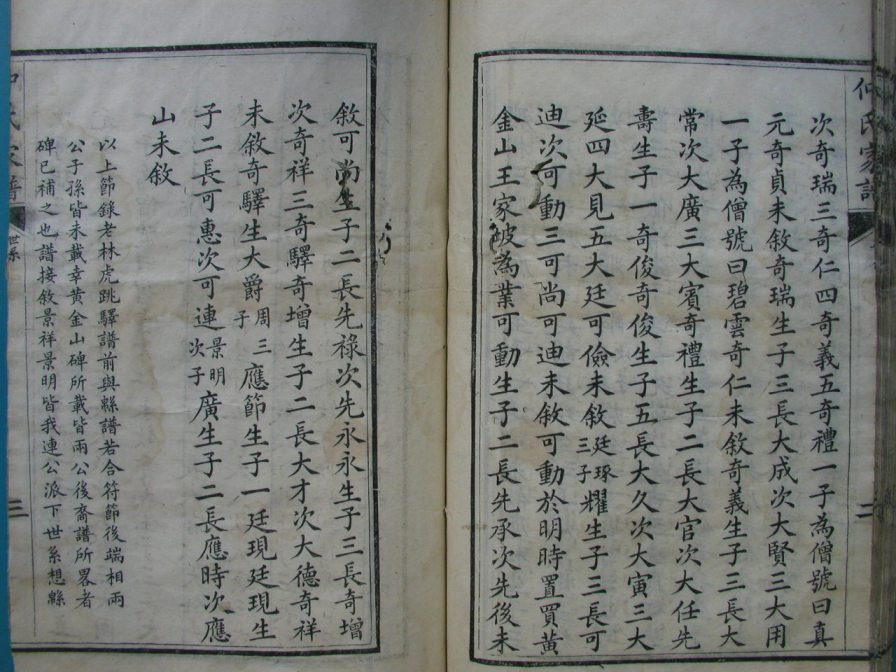 仲氏家譜
次奇瑞三奇仁四奇義五奇禮一子為僧號曰真
元奇貞未敘奇瑞生子三長大成次大賢三大用
一子為僧號曰碧雲奇仁未敘奇義生子三長大
常次大廣三大賓奇禮生子二長大官次大任先
壽生子一奇俊奇俊生子五長大久次大寅三大
延四大見五大廷可儉未敘廷琢三子耀生子三長可
迪次可動三可尚可迪未敘可動於明時置買黃
金山王家坡為業可動生子二長先承次先後未
二
敘可尚生子二長先祿次先永永生子三長奇增
次奇祥三奇驛奇增生子二長大才次大德奇祥
未敘奇驛生大爵周三子應節生子一廷現廷現生
子二長可惠次可連景明次子廣生子二長應時次應
山未敘
以上節錄老林虎跳驛譜前與縣譜若合符節後端相兩
公子孫皆未載幸黃金山碑所載皆兩公後裔譜所畧者
碑已補之也譜接敘景祥景明皆我連公派下世系想縣
氏家譜
世系
三